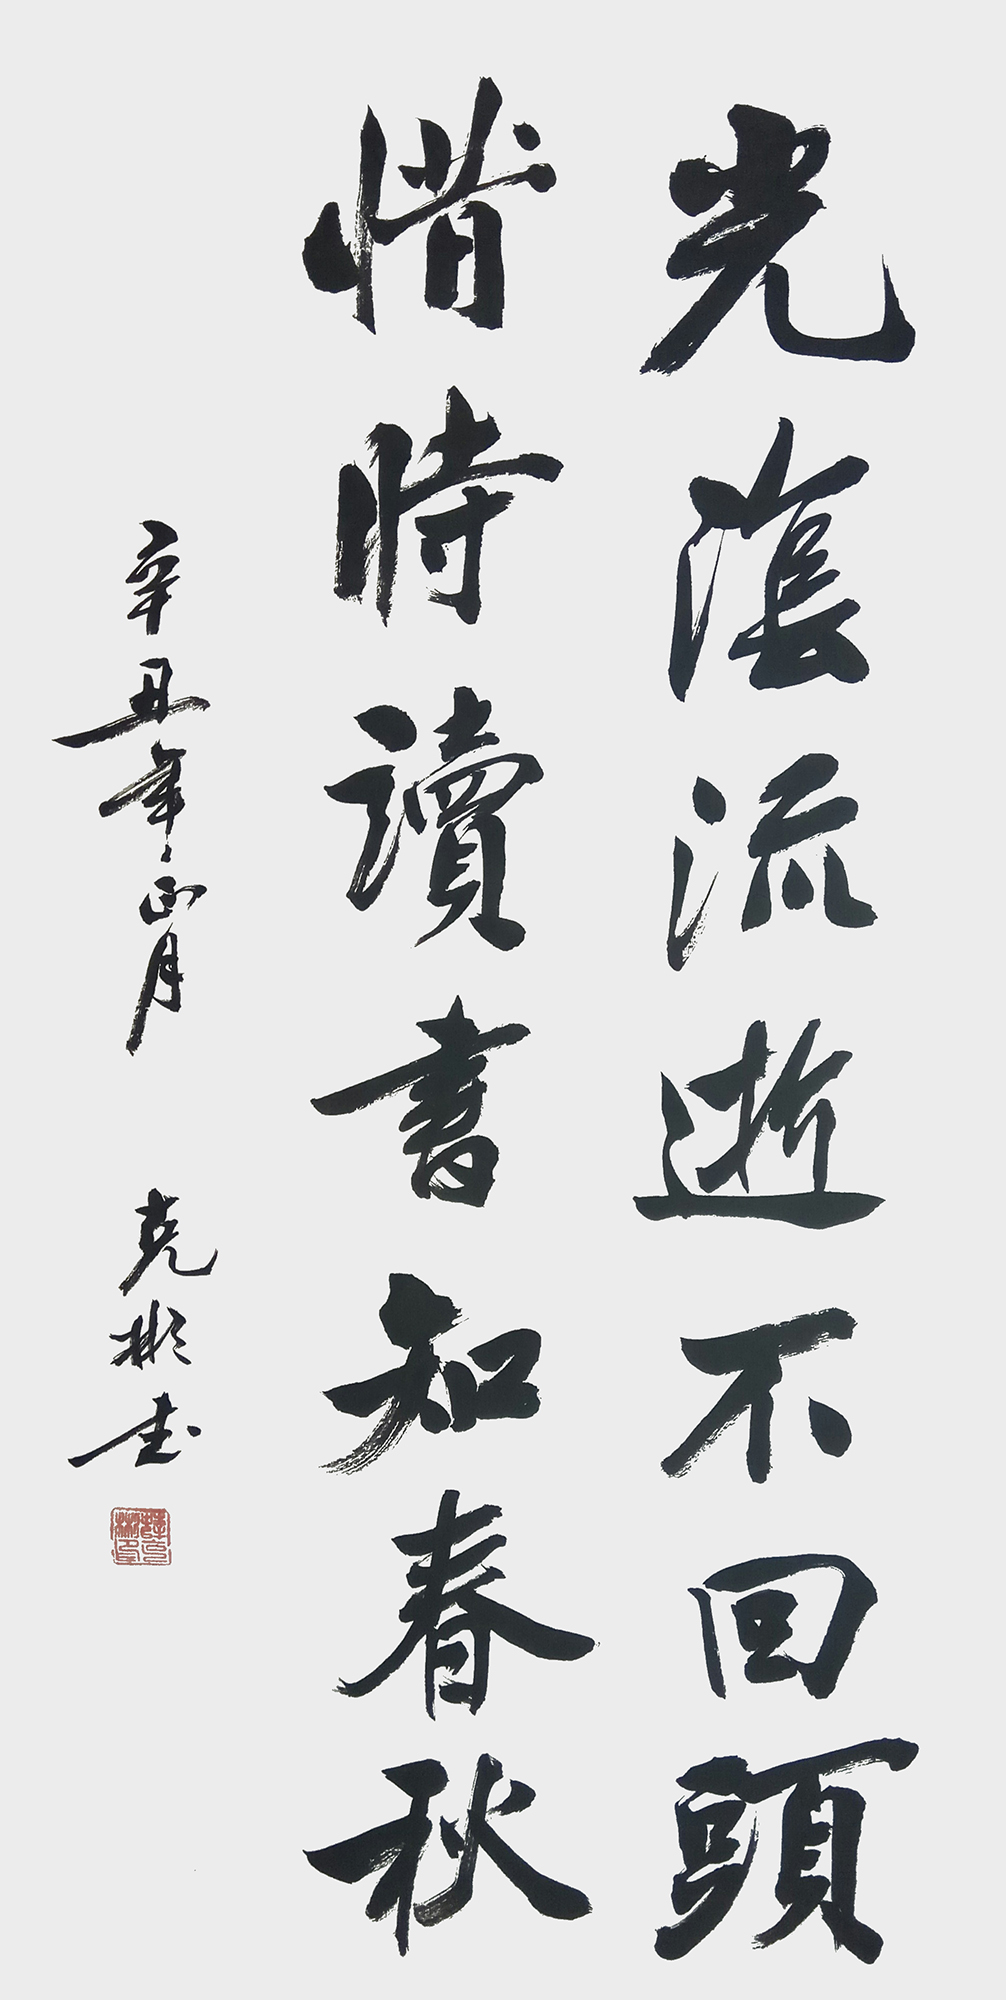 光陰流逝不回頭
惜時讀書知春秋
辛丑年正月 克彬书